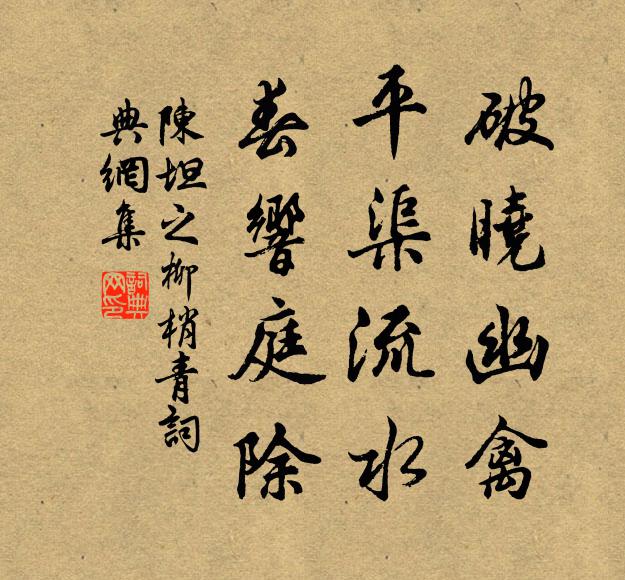 破曉幽禽
平渠流水
春響庭除
陳坦之柳梢青詞
典網集
詞典網印